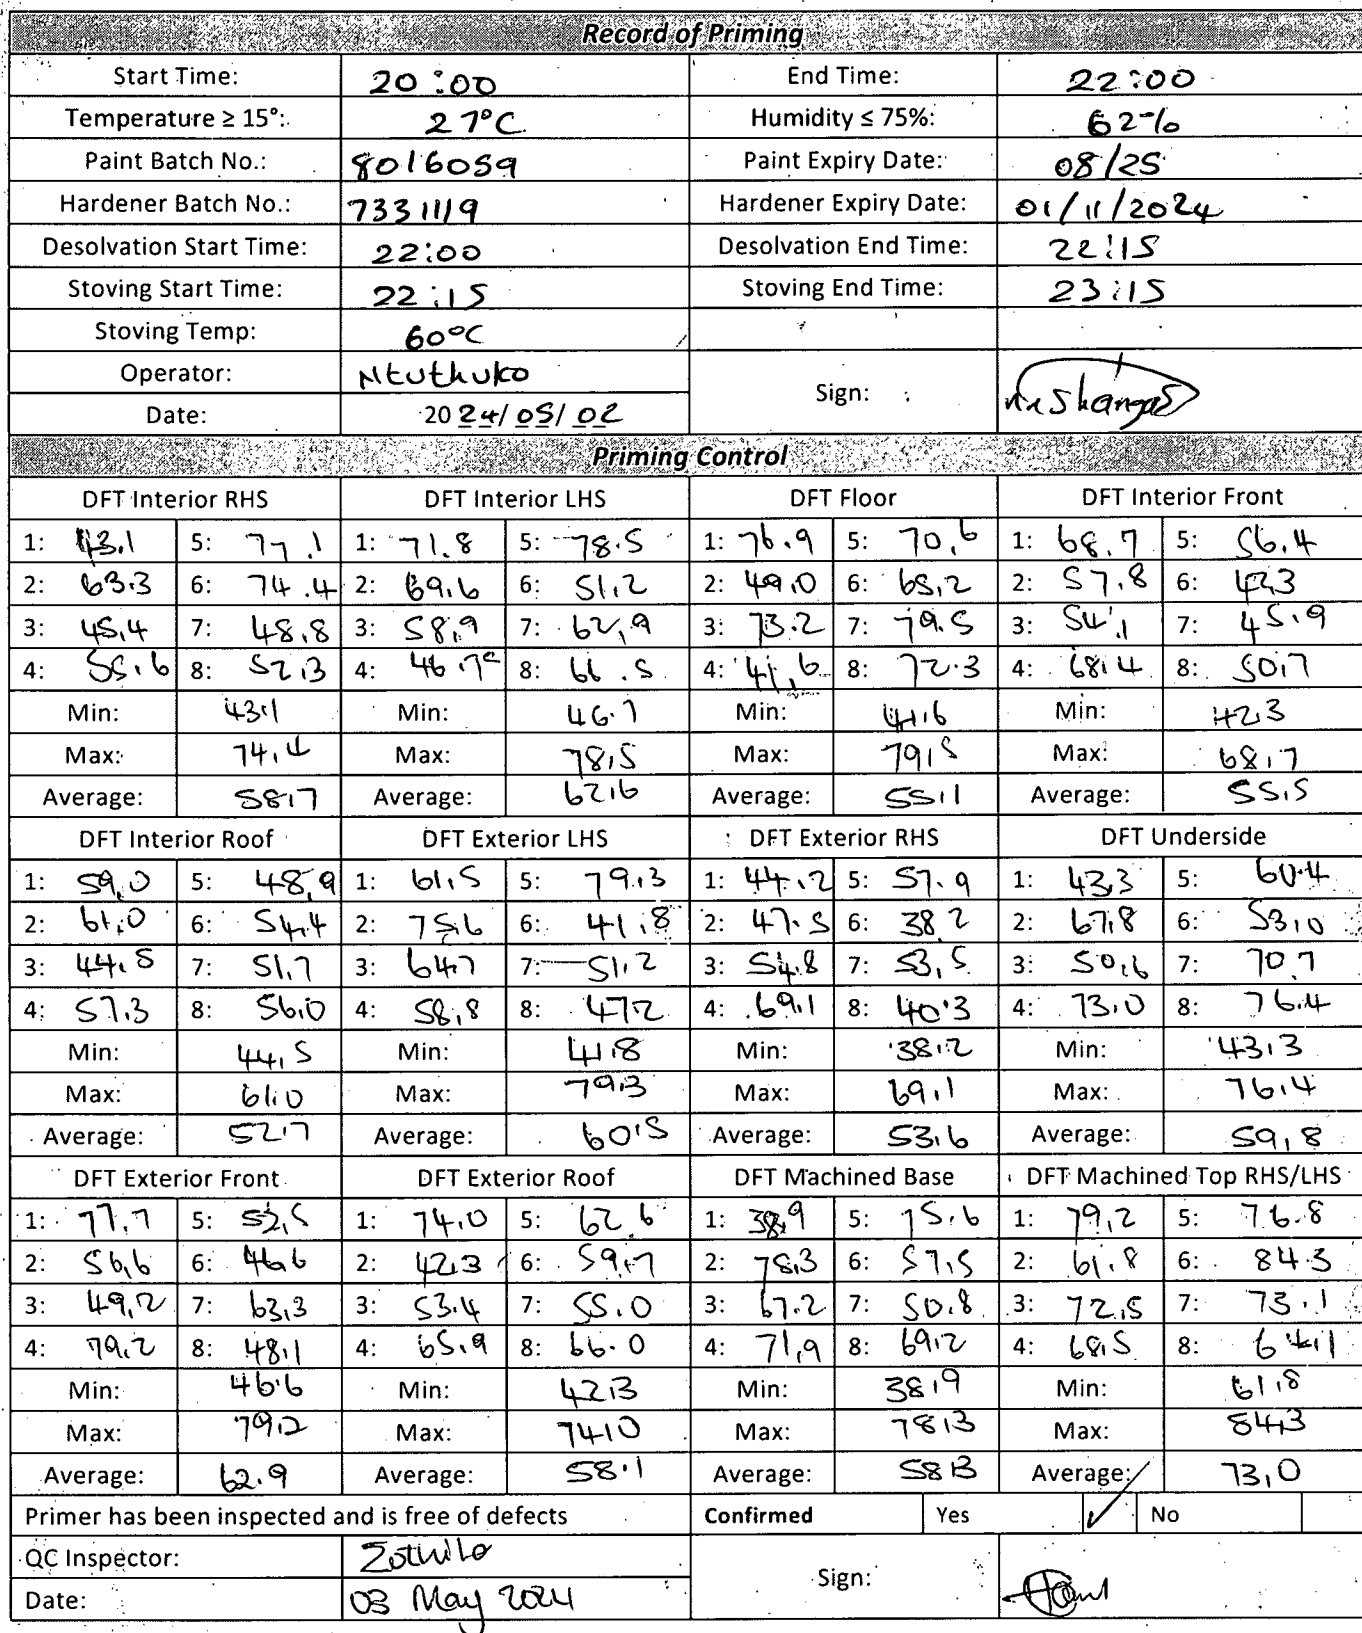 Record of Priming
Start Time: 20:00 End Time: 22:00
Temperature ≥ 15°: 27°C Humidity ≤ 75%: 62%
Paint Batch No.: 8016059 Paint Expiry Date: 08/25
Hardener Batch No.: 7331119 Hardener Expiry Date: 01/11/2024
Desolvation Start Time: 22:00 Desolvation End Time: 22:15
Stoving Start Time: 22:15 Stoving End Time: 23:15
Stoving Temp: 60°C
Operator: Ntuthuko Sign:
Date: 2024/05/02
Priming Control
DFT Interior RHS DFT Interior LHS DFT Floor DFT Interior Front
1: 43.1 5: 77.1 1: 71.8 5: 78.5 1: 76.9 5: 70.6 1: 68.7 5: 56.4
2: 63.3 6: 74.4 2: 69.6 6: 51.2 2: 49.0 6: 65.2 2: 57.8 6: 42.3
3: 45.4 7: 48.8 3: 58.9 7: 62.9 3: 73.2 7: 79.5 3: 54.1 7: 45.9
4: 55.6 8: 52.3 4: 46.7 8: 66.5 4: 41.6 8: 72.3 4: 68.4 8: 50.7
Min: 43.1 Min: 46.7 Min: 41.6 Min: 42.3
Max: 74.4 Max: 78.5 Max: 79.5 Max: 68.7
Average: 58.7 Average: 62.6 Average: 55.1 Average: 55.5
DFT Interior Roof DFT Exterior LHS DFT Exterior RHS DFT Underside
1: 59.0 5: 48.9 1: 61.5 5: 79.3 1: 44.2 5: 57.9 1: 43.3 5: 60.4
2: 61.0 6: 54.4 2: 75.6 6: 41.8 2: 47.5 6: 38.2 2: 67.8 6: 53.0
3: 44.5 7: 51.7 3: 64.7 7: 51.2 3: 54.8 7: 53.5 3: 50.6 7: 70.7
4: 57.3 8: 56.0 4: 58.8 8: 47.2 4: 69.1 8: 40.3 4: 73.0 8: 76.4
Min: 44.5 Min: 41.8 Min: 38.2 Min: 43.3
Max: 61.0 Max: 79.3 Max: 69.1 Max: 76.4
Average: 52.7 Average: 60.5 Average: 53.6 Average: 59.8
DFT Exterior Front DFT Exterior Roof DFT Machined Base DFT Machined Top RHS/LHS
1: 77.7 5: 52.5 1: 74.0 5: 62.6 1: 38.9 5: 75.6 1: 79.2 5: 76.8
2: 56.6 6: 46.6 2: 42.3 6: 59.7 2: 78.3 6: 57.5 2: 61.8 6: 84.3
3: 49.2 7: 63.3 3: 53.4 7: 55.0 3: 67.2 7: 50.8 3: 72.5 7: 73.1
4: 79.2 8: 48.1 4: 65.9 8: 66.0 4: 71.9 8: 69.2 4: 68.5 8: 64.1
Min: 46.6 Min: 42.3 Min: 38.9 Min: 61.8
Max: 79.2 Max: 74.0 Max: 78.3 Max: 84.3
Average: 62.9 Average: 58.1 Average: 58.3 Average: 73.0
Primer has been inspected and is free of defects Confirmed Yes ✓ No
QC Inspector: Zothile Sign:
Date: 03 May 2024